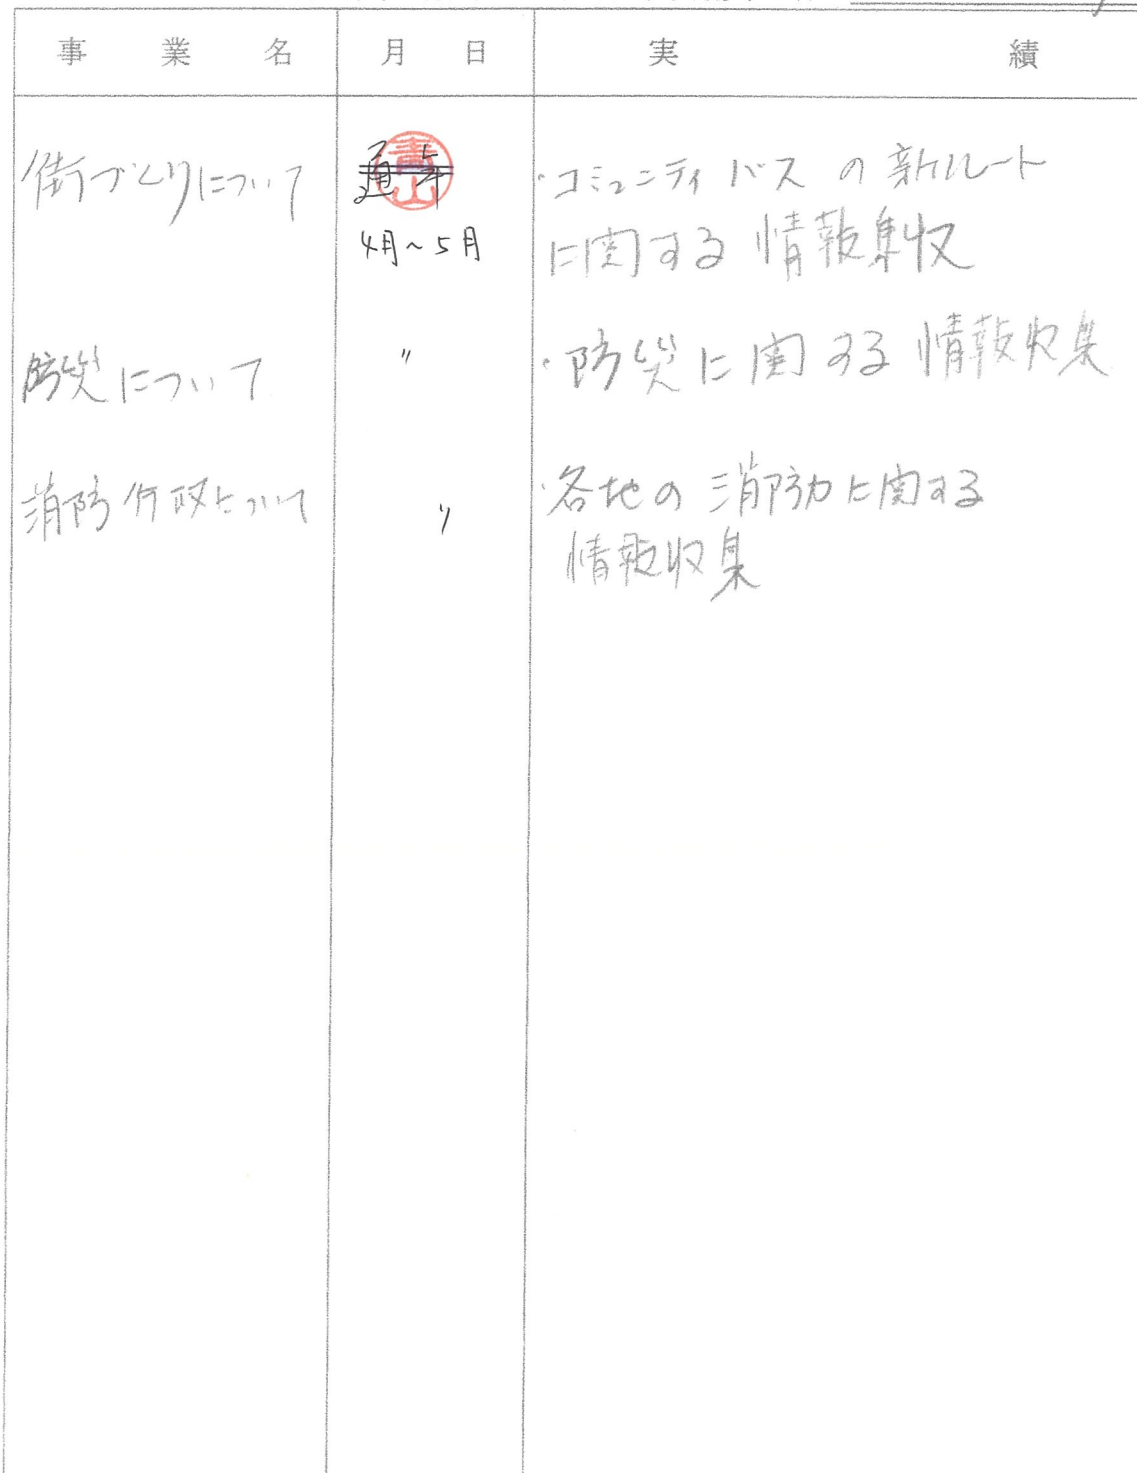 事業名 月日 実績
街づくりについて 通年 ・コミュニティバスの新ルート
青山
4月〜5月 に関する情報集収
防災について 〃 ・防災に関する情報収集
消防行政について 〃 ・各地の消防力に関する
情報収集